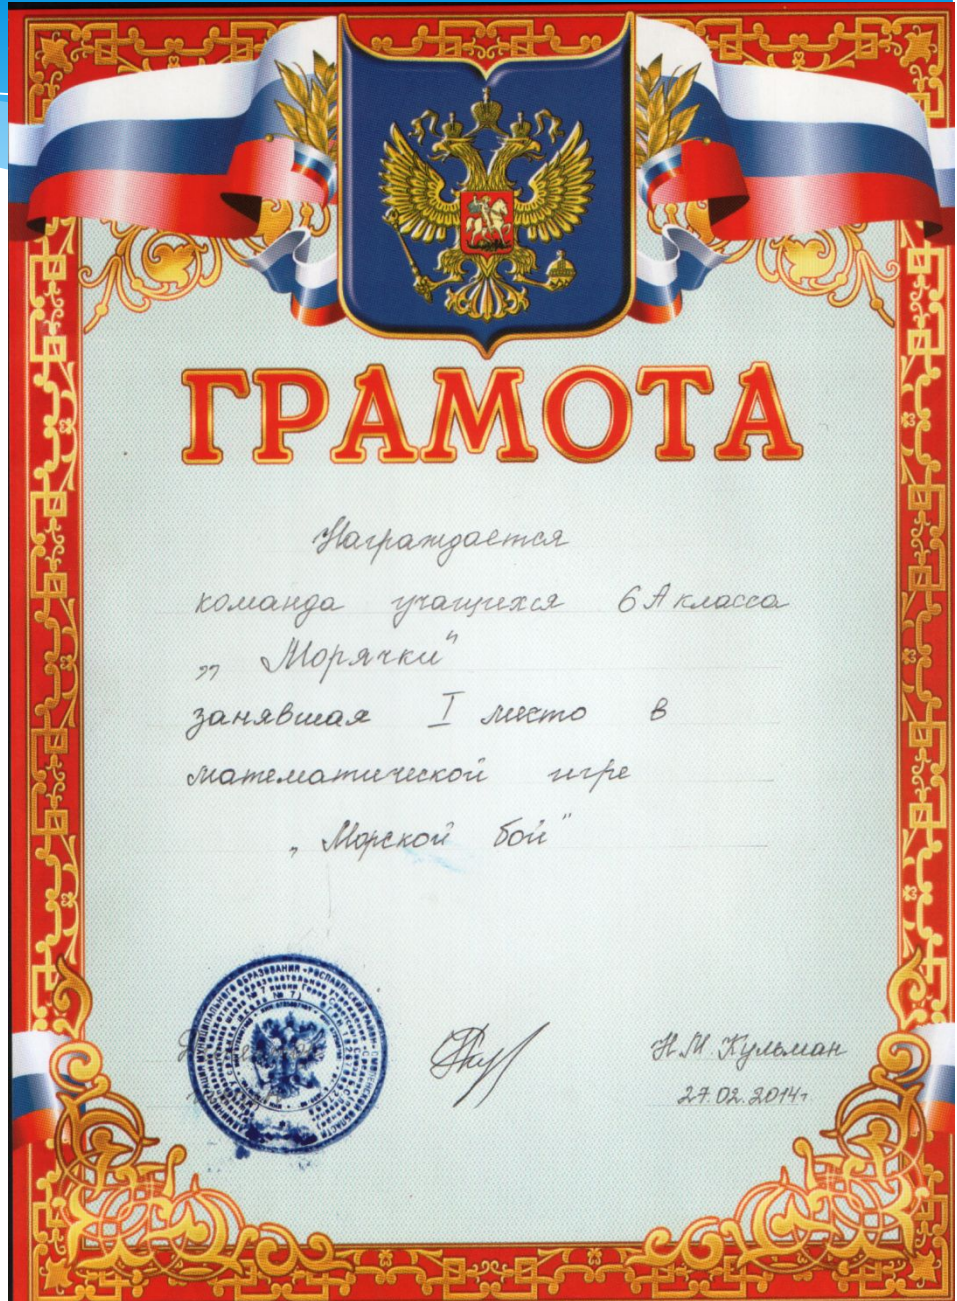 ГРАМОТА
Награждается
команда учащихся 6 А класса
„ Морячки"
занявшая I место в
математической игре
„ Морской бой"
Н.М. Кульман
27.02.2014г.